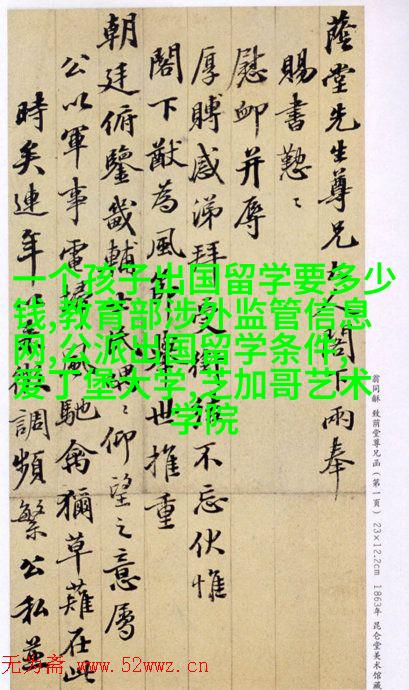 蔭堂先生尊兄大人閣下兩奉
賜書懃〻
慰卹并辱
厚賻感涕拜受銜
不忘伏惟
閣下猷為風
世推重
朝廷俯鑒畿輔
仰望之意屬
公以軍事電
馳禽獮草薙在此
時矣連年
調頻繁公私
一个孩子出国留学要多少
钱,教育部涉外监管信息
网,公派出国留学条件,
爱丁堡大学,芝加哥艺术
学院
翁同龢 致荫堂尊兄函(第一页) 23×12.2cm 1863年 昆仑堂美术馆藏
无为斋 www.52wwz.cn